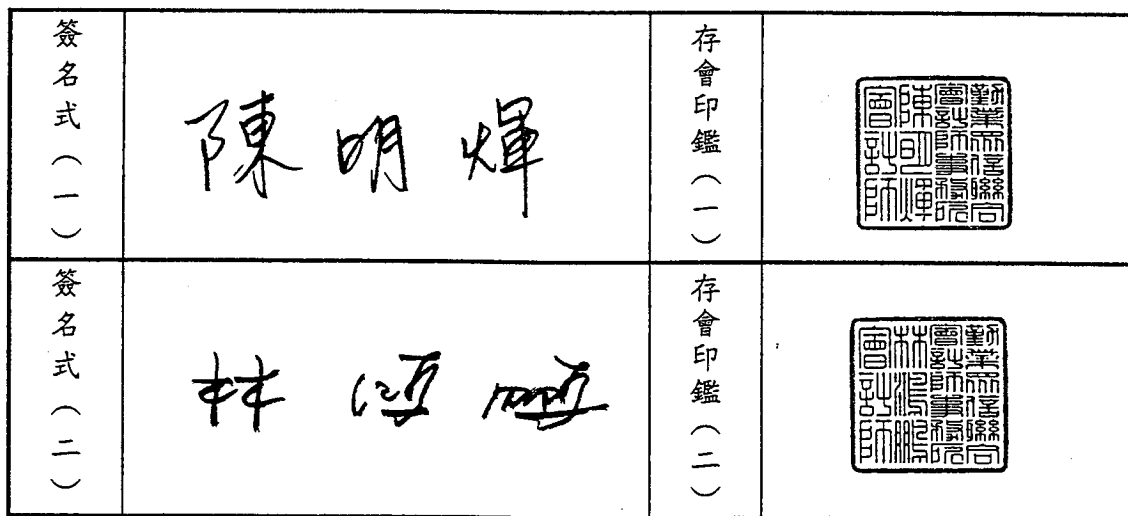 簽名式（一）
陳明煇
存會印鑑（一）
勤業眾信聯合
會計師事務所
陳明煇
會計師
簽名式（二）
林鴻鵬
存會印鑑（二）
勤業眾信聯合
會計師事務所
林鴻鵬
會計師